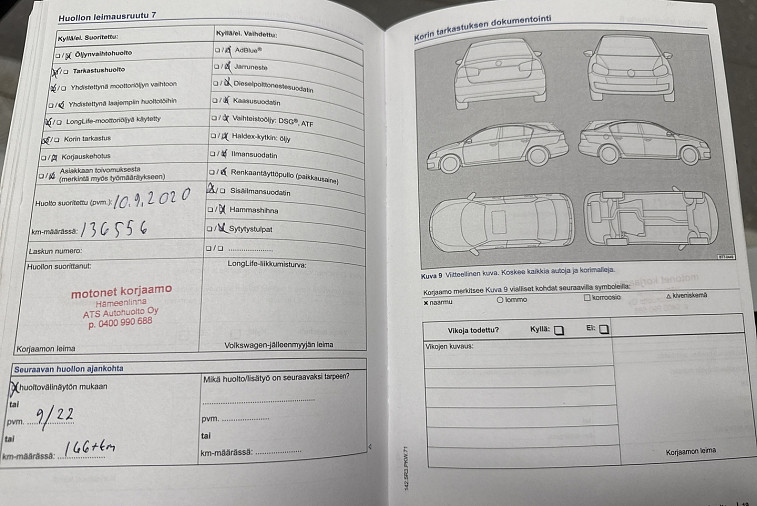 Huollon leimausruutu 7
Kyllä/ei. Suoritettu:
Öljynvaihtohuolto
Tarkastushuolto
Yhdistettynä moottoriöljyn vaihtoon
Yhdistettynä laajempiin huoltotöihin
LongLife-moottoriöljyä käytetty
Korin tarkastus
Korjauskehotus
Asiakkaan toivomuksesta
(merkintä myös työmääräykseen)
Huolto suoritettu (pvm.): 10.9.2020
km-määrässä: 136556
Laskun numero:
Huollon suorittanut:
motonet korjaamo
Hämeenlinna
ATS Autohuolto Oy
p. 0400 990 688
Korjaamon leima
Kyllä/ei. Vaihdettu:
AdBlue®
Jarruneste
Dieselpolttonestesuodatin
Kaasusuodatin
Vaihteistoöljy: DSG®, ATF
Haldex-kytkin: öljy
Ilmansuodatin
Renkaantäyttöpullo (paikkausaine)
Sisäilmansuodatin
Hammashihna
Sytytystulpat
LongLife-liikkumisturva:
Volkswagen-jälleenmyyjän leima
Seuraavan huollon ajankohta
huoltovälinäytön mukaan
tai
pvm. 9/22
tai
km-määrässä: 166tkm
Mikä huolto/lisätyö on seuraavaksi tarpeen?
pvm.
tai
km-määrässä:
Korin tarkastuksen dokumentointi
Kuva 9 Viitteellinen kuva. Koskee kaikkia autoja ja korimalleja.
Korjaamo merkitsee Kuva 9 vialliset kohdat seuraavilla symboleilla:
x naarmu
lommo
korroosio
kiveniskemä
Vikoja todettu? Kyllä: Ei:
Vikojen kuvaus:
Korjaamon leima